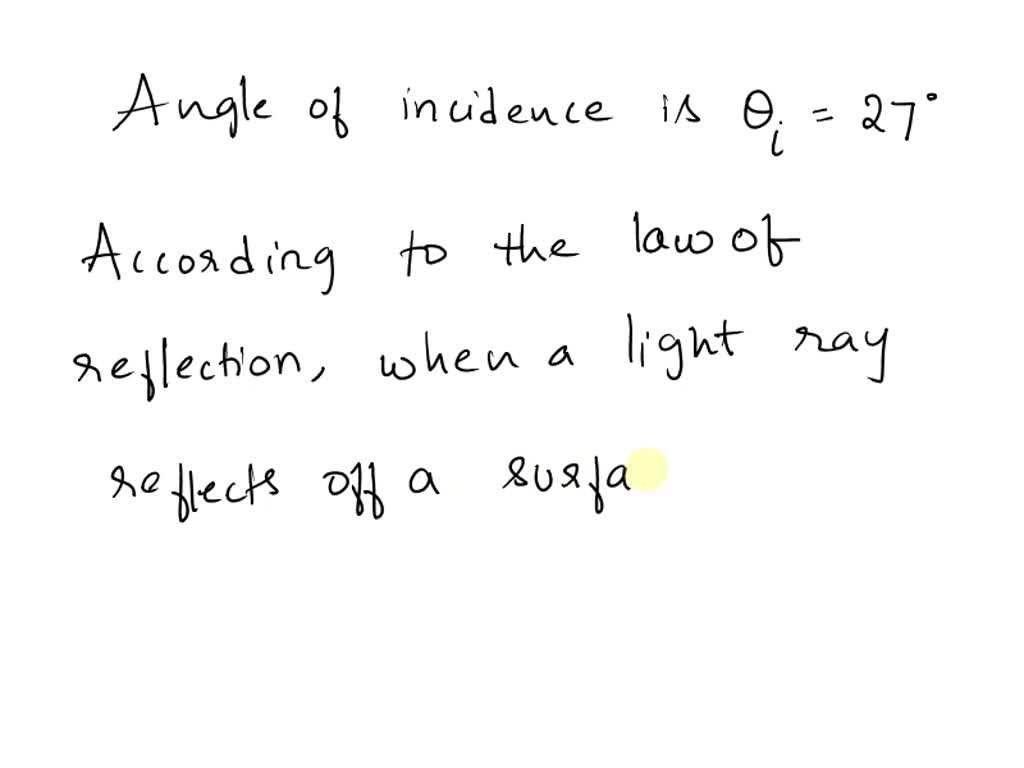 Angle of incidence is θi = 27°
According to the law of
reflection, when a light ray
reflects off a surfa